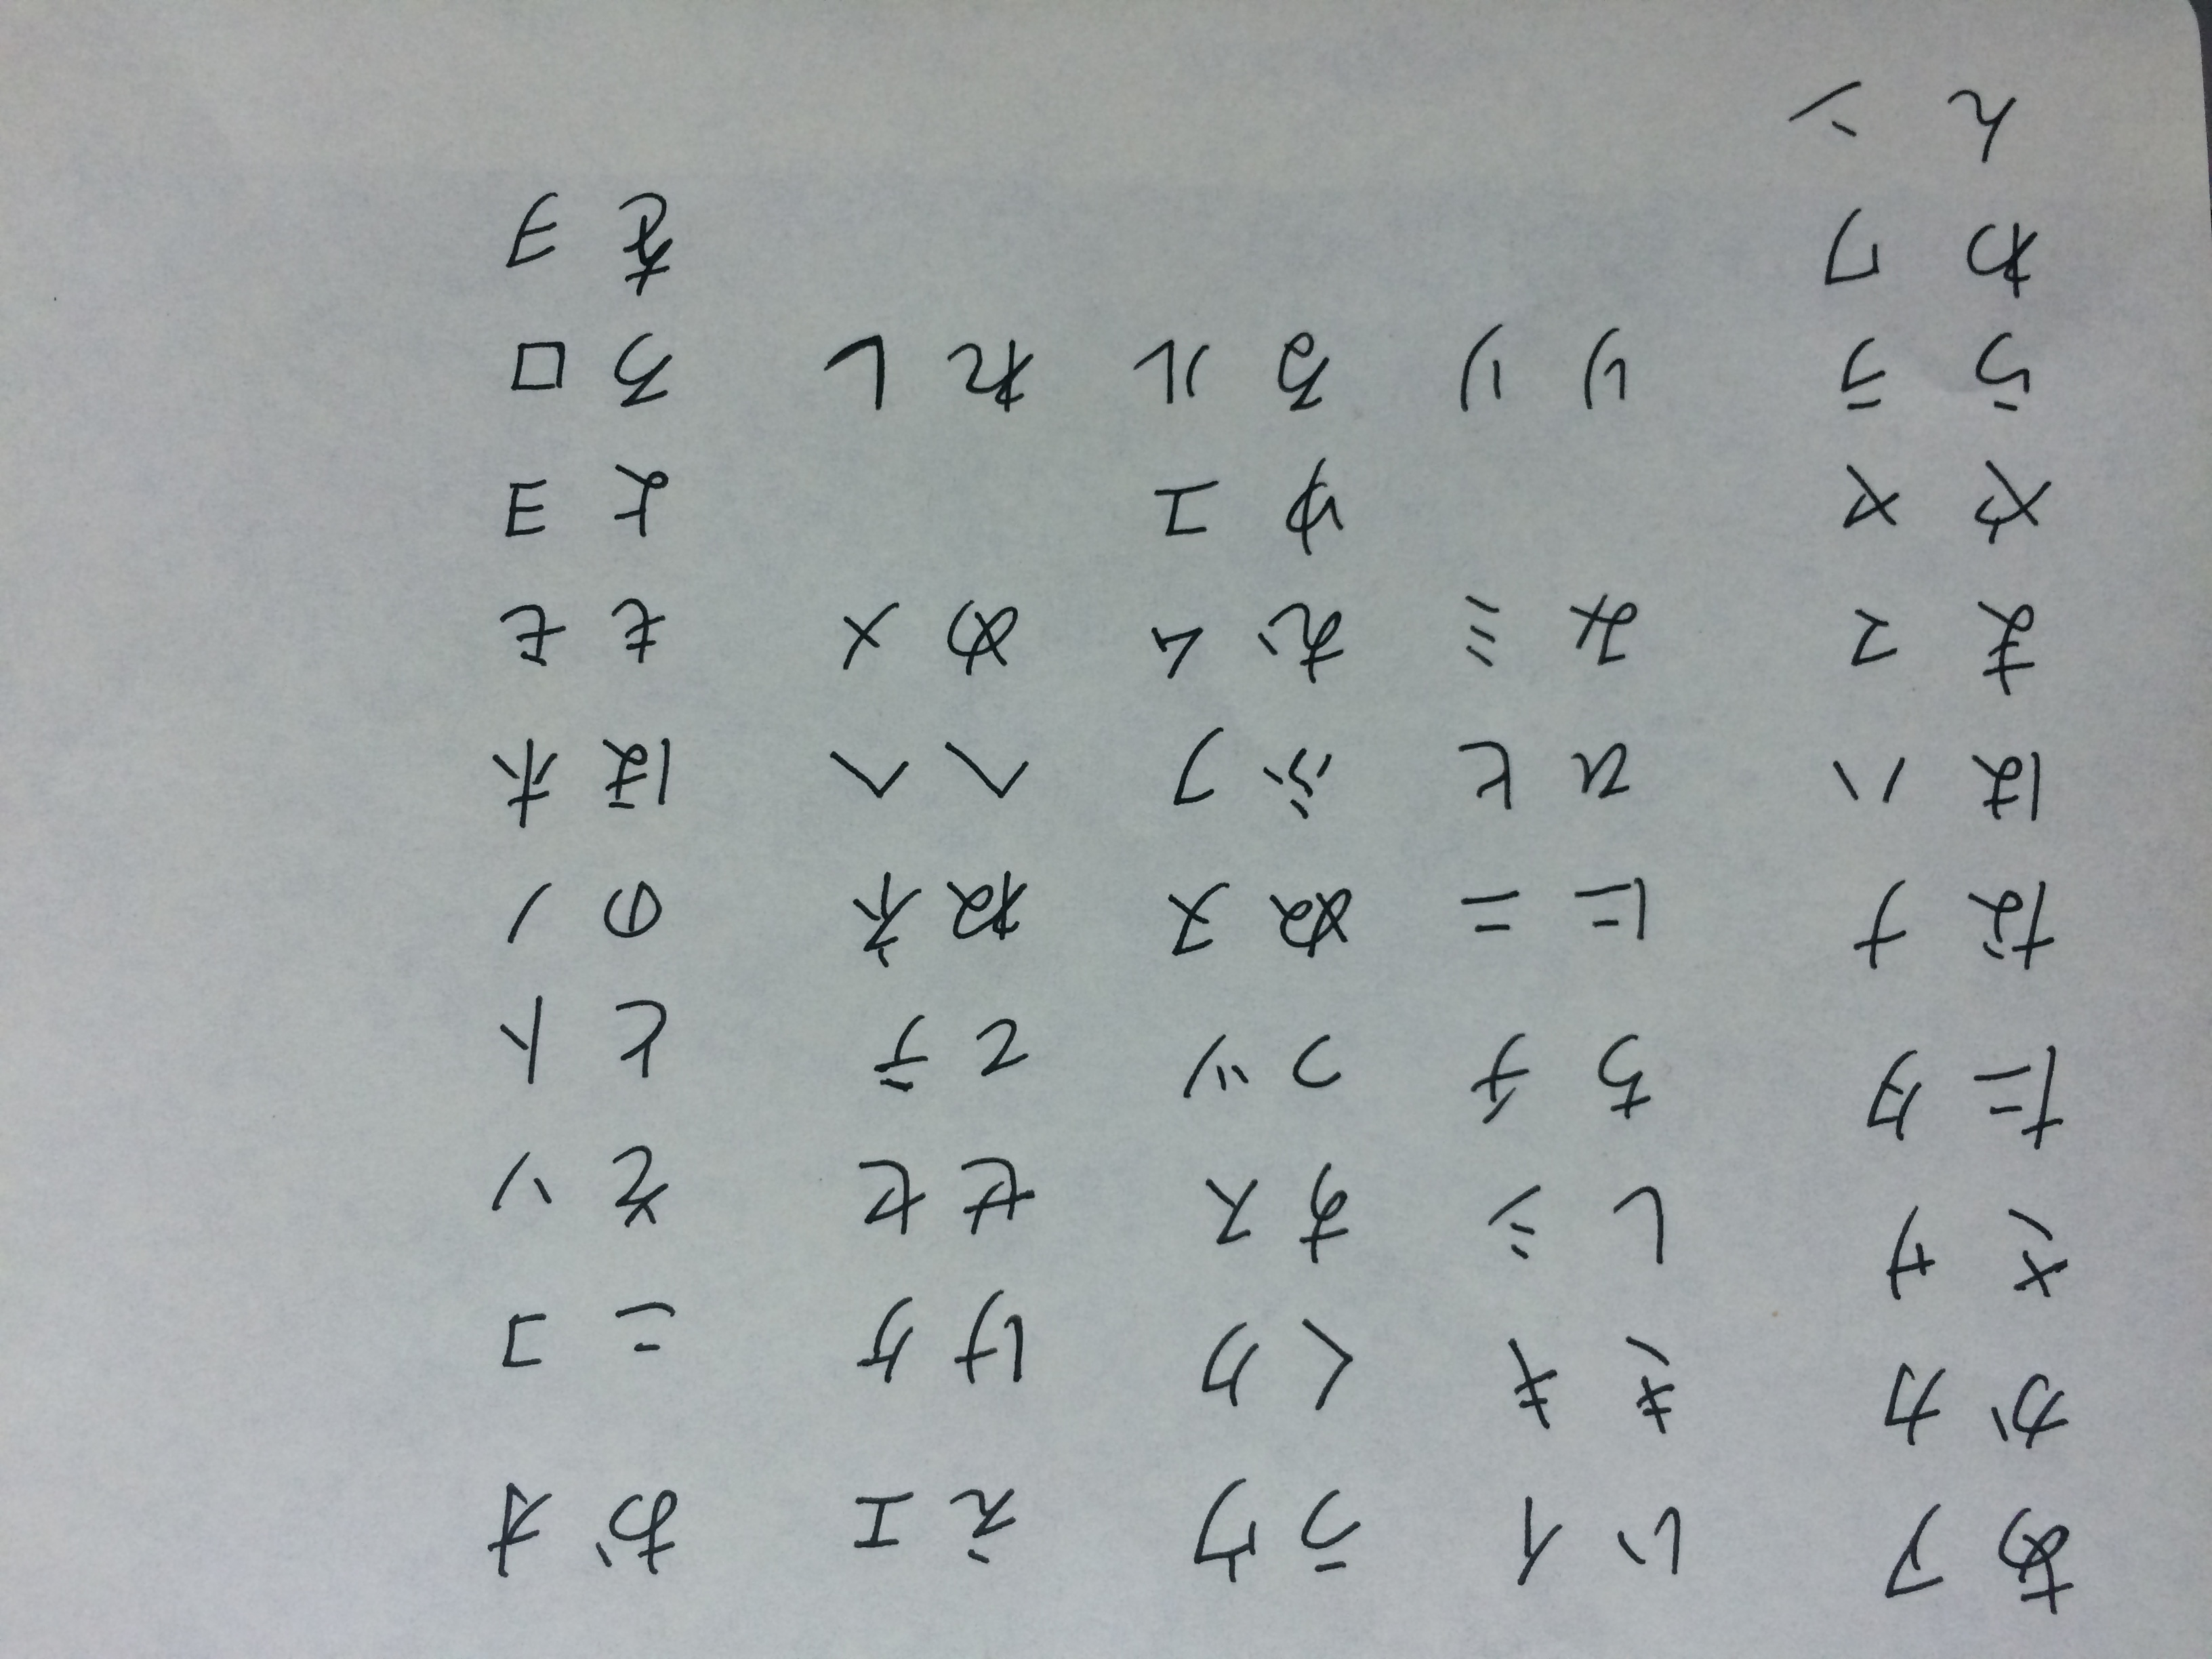 あ ア い イ う ウ え エ お オ
か カ き キ く ク け ケ こ コ
さ サ し シ す ス せ セ そ ソ
た タ ち チ つ ツ て テ と ト
な ナ に ニ ぬ ヌ ね ネ の ノ
は ハ ひ ヒ ふ フ へ ヘ ほ ホ
ま マ み ミ む ム め メ も モ
や ヤ ゆ ユ よ ヨ
ら ラ り リ る ル れ レ ろ ロ
わ ワ を ヲ
ん ン